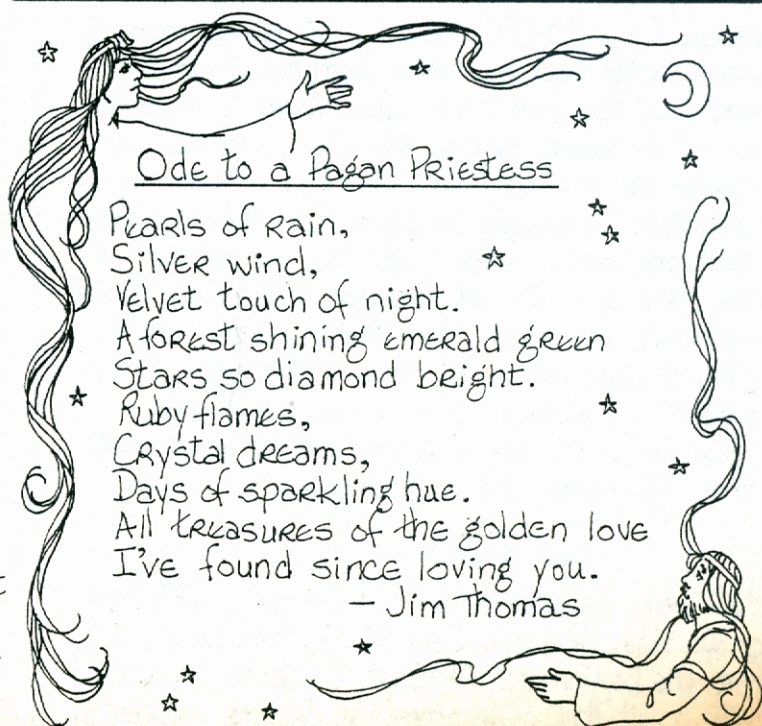 Ode to a Pagan Priestess
Pearls of rain,
Silver wind,
Velvet touch of night.
A forest shining emerald green
Stars so diamond bright.
Ruby flames,
Crystal dreams,
Days of sparkling hue.
All treasures of the golden love
I've found since loving you.
— Jim Thomas